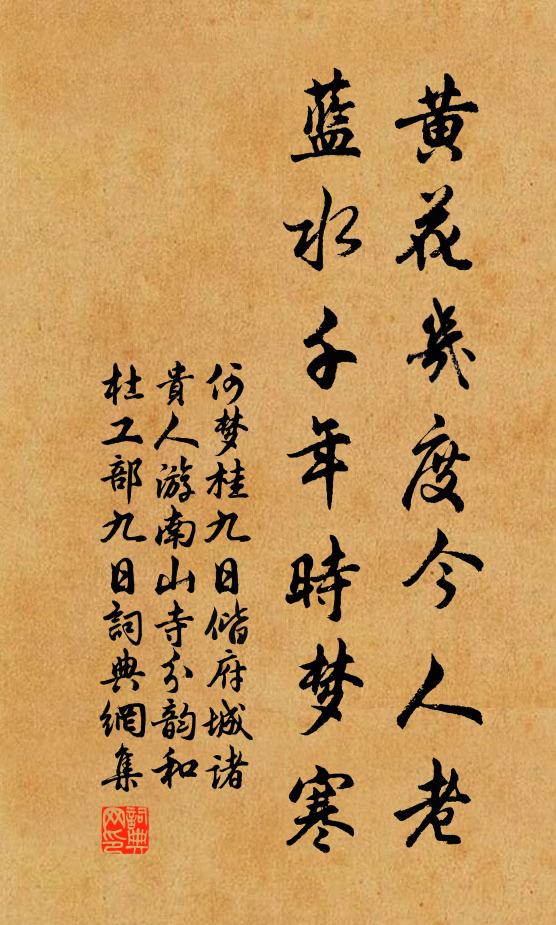 黄花幾度今人老
藍水千年時梦寒
何梦桂九日偕府城诸
貴人游南山寺分韵和
杜工部九日詞典網集
詞典网印